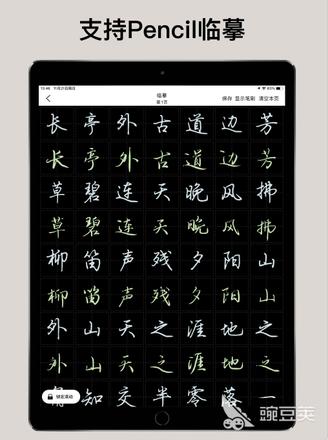 支持Pencil临摹
临摹
第1页
保存 显示笔刷 清空本页
长亭外古道边芳
长亭外古道边芳
草碧连天晚风拂
草碧连天晚风拂
柳笛声残夕阳山
柳笛声残夕阳山
外山天之涯地之
外山天之涯地之
知交半零落一
锁定滚动
豌豆荚